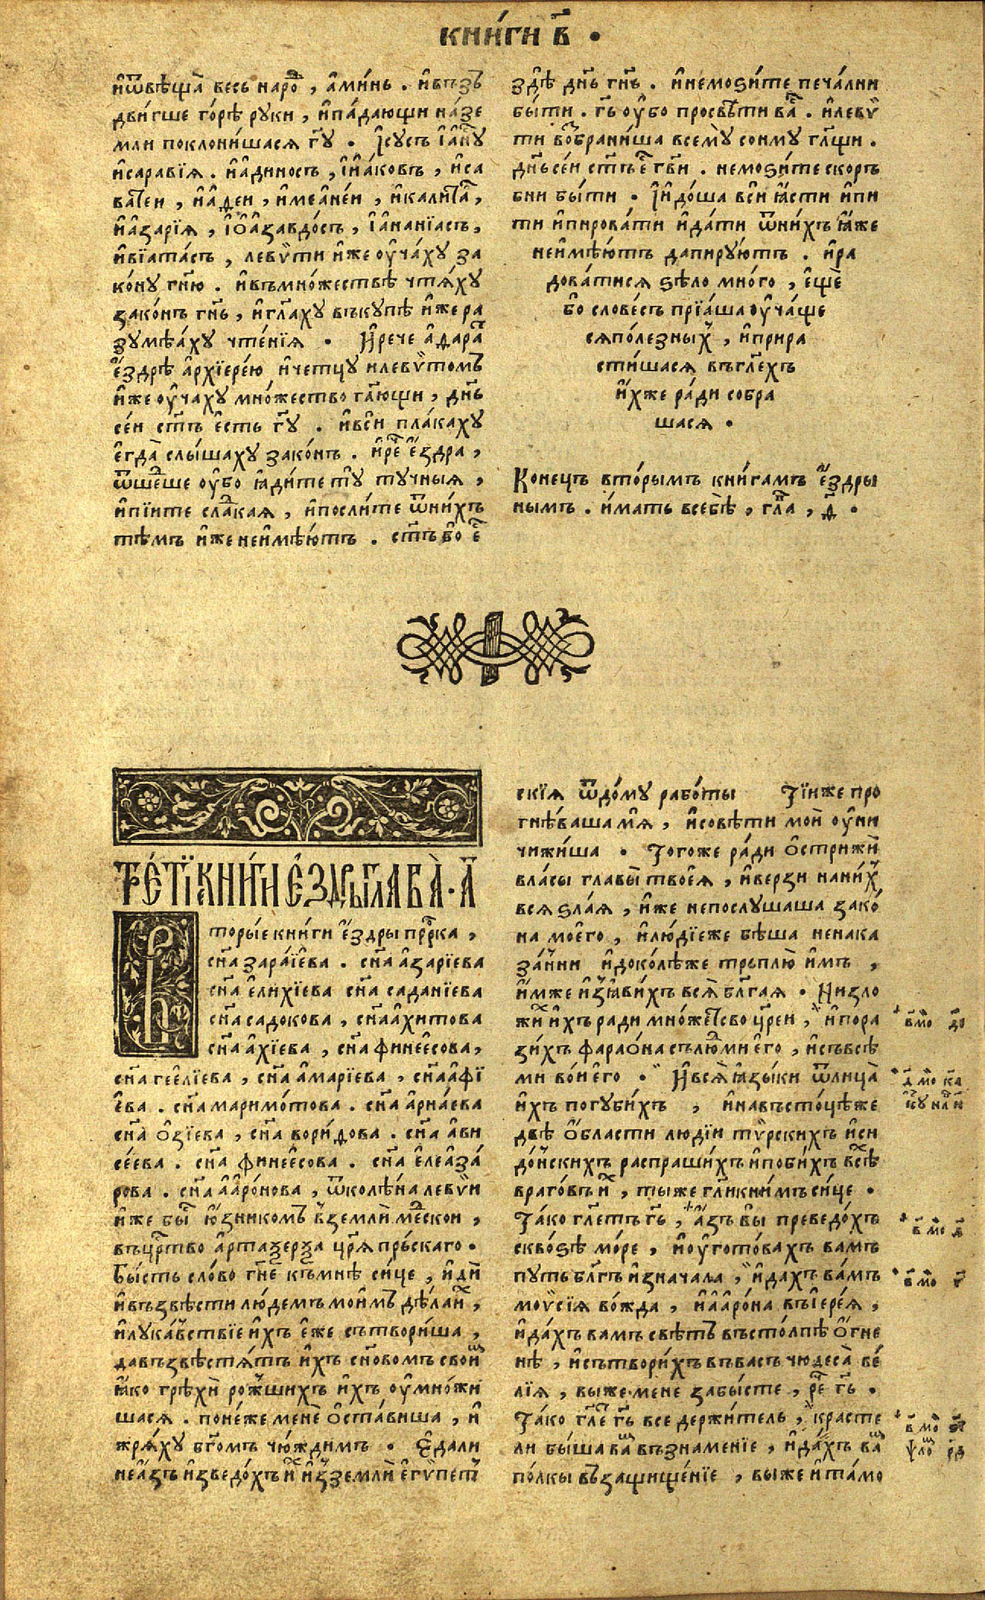 КНИ́ГИ В҃ .
и҆ѿвѣща̀ весь наро́ⷣ , а҆ми́нь . и҆въⷥ
дви́гше го́рѣ руки , и҆па́дающи на́зе
мли поклони́шася гⷭ҇у . І҆су́съ і҆а́нꙋ
и҆саравїѧ . и҆а҆ди́носъ , і҆и҆а́ковъ , и҆са
и҆а҆за́рїѧ , і҆ѻ҆а҆завдо́съ , і҆а҆нанїасъ ,
и҆вїата́съ , левѵ́ти и҆же оу҆ча́ху за
ко́ну гⷭ҇ню . и҆въмно́жествѣ чтѧ́ху
зако́нъ гⷭ҇нь , и҆гл҃аху въкупѣ и҆же ра
зумѣ́аху чте́нїѧ . И҆рече а҆дара́ⷮ
е҆́здрѣ а҆рхїере́ю и҆четцу илевѵ́томъ
и҆же оу҆чаху мно́жество гл҃ющи , дн҃ь
се́и ст҃ъ є҆сть гⷭ҇у . и҆вси пла́каху
є҆гда̀ слы́шаху зако́нъ . и҆реⷱ҇ е҆́здра ,
ѿше́ⷣше оу҆бо ꙗ҆ди́те тꙋ ту́чныѧ ,
и҆пїи́те сла́ⷣкая , и҆посли́те ѿни́хъ
тѣмъ и҆же неи҆мѣ́ютъ . ст҃ъ бо є҆ⷭ҇
здѣ̀ дн҃ь гⷭ҇нь . и҆немоѕи́те печа́лни
бы́ти . гⷭ҇ь оу҆́бо просвѣ́ти ва́ⷭ . илевѵ҆
ти во́ⷥбрани́ша всему̀ сонму гл҃щи .
дн҃ьсе́и ст҃ъ є҆ⷭ҇ гв҃и . немоѕи́те скоръ
бни бы́ти . І҆и҆до́ша вси ꙗ҆́сти и҆пи
ти и҆пирова́ти и҆да́ти ѿни́хъ ꙗ҆́же
неи҆мѣ́ютъ дапиру́ютъ . и҆ра
дова́тися ѕѣло мно́го , є҆щѐ
бо словесъ прїа́ша оу҆ча́ще
сѧполезны́ⷯ , и҆прира
сти́шася въгл҃ехъ
и҆́хже ра́ди собра
шася .
Конецъ вторы́мъ кни́гамъ е҆́здры
нымъ . и҆́мать всебѣ̀ , гла́ⷡ , д҃ .
ТРЕ́ТЇѦ КНИ́ГИ Е҆́ЗДРЫ ГЛАВА̀ . А҃
Вторы́е кни́ги е҆́здры прⷪ҇рка ,
сн҃а зара́їева . сн҃а а҆за́рїева
сн҃а є҆лихі́ева сн҃а садані́ева
сн҃а садокова , сн҃а а҆хитова
сн҃а а҆хі́ева , сн҃а финее҆сова ,
сн҃а гее҆лїева , сн҃а а҆марїева , сн҃а а҆фї
є҆ва . сн҃а маримо́това . сн҃а а҆рна́ева
сн҃а ѻ҆зїева , сн҃а вори́дова . сн҃а а҆ви
се́ева . сн҃а финее҆сова . сн҃а є҆леа҆за́
рова . сн҃а а҆а҆ро́нова , ѿколѣ́на левѵ́и
и҆́же бы́ⷭ ю҆́зникомъ въземлѝ ме́ⷣскои ,
въцрⷭ҇тво а҆ртаѯерѯа црѧ̀ пръ́скаго .
Бы́сть сло́во гⷭ҇не къмнѣ̀ си́це , и҆дѝ
и҆възвѣсти лю́демъ мои́мъ дѣла и҆́ⷯ ,
и҆лука́вствїе и҆́хъ є҆же сътвори́ша ,
давъзвѣстѧ́тъ и҆́хъ сн҃овомъ свои́ⷨ
ꙗ҆́ко грѣхѝ ро́ⷤшихъ и҆́хъ оу҆мно́жи
шася . поне́же менѐ ѻ҆ста́виша , и҆
жрѧ́ху бг҃омъ чю́ждимъ . Є҆дали
неа҆́зъ и҆зведо́хъ и҆́ⷯ и҆ⷥземлѝ є҆гѵ́петⷭ
скїѧ ѿдо́му рабо́ты Ті́иже про
гнѣ́ваша мѧ̀ , и҆совѣ́ти мой оу҆ни
чижи́ша . Того́же ра́ди ѻ҆стрижѝ
вла́сы главы̀ твоеѧ̀ , и҆верзи нани́ⷯ
всѧ ѕла́ѧ , и҆́же непослу́шаша зако́
на моего̀ , и҆лю́дїеже бѣ́ша ненака
за́нни и҆доко́лѣже тръплю̀ и҆̀мъ ,
и҆́мже и҆зꙗ҆ви́хъ всѧ̀ бл҃гая . Низло
жи́ⷯ и҆́хъ ради мно́жеⷭ҇тво цр҃еи , и҆пора
зи́хъ фарао́на сълю́ⷣми є҆го , и҆съвсѣ́
ми во́и є҆го . И҆всѧ̀ ꙗ҆зы́ки ѿлица̀
и҆́хъ погуби́хъ , и҆навъсто́цѣже
двѣ̀ ѻ҆́бласти лю́дїи тѵ́рскихъ и҆си
до́нскихъ распраши́хъ и҆поби́хъ всѣ̀
враго́въ и҆́ⷯ , ты́же гл҃и книмъ си́це .
Та́ко гл҃етъ гⷭ҇ь , а҆́зъ вы̀ преведо́хъ
сквоѕѣ̀ мо́ре , и҆оу҆гото́вахъ ва́мъ
пу́ть бл҃гъ и҆знача́ла , и҆да́хъ ва́мъ
моѵсїѧ во́жда , и҆а҆а҆ро́на въїере́ѧ ,
и҆да́хъ ва́мъ свѣ́тъ въсто́лпѣ ѻ҆́гне
нѣ , и҆сътвори́хъ въва́съ чюдеса̀ ве́
лїѧ , вы́же мене забы́сте , ре́ⷱ гⷭ҇ь .
Та́ко гл҃еⷮ гⷭ҇ь все держи́тель , красте
ли бы́ша ва́ⷨ възна́менїе , и҆да́хъ ва́ⷨ
по́лкы въ защище́нїе , вы́же и҆та́мо